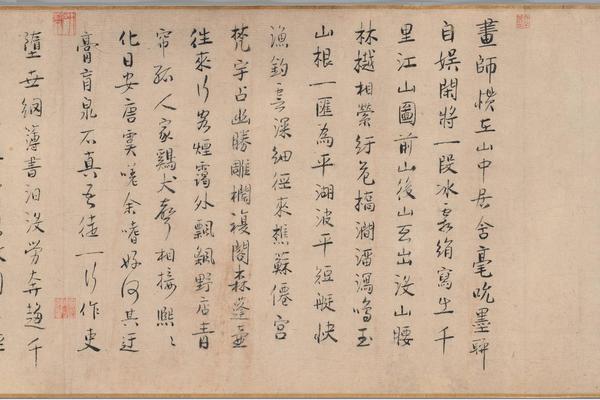 畫師慣在山中居含毫吮墨聊
自娛閑將一段冰雪絹寫出千
里江山圖前山後山互出沒山腰
林樾相縈紆危橋澗瀉鳴玉
山根一匯為平湖波平短艇快
漁釣雲深細徑來樵蘇僊宮
梵宇占幽勝雕欄複閣森蓬壺
往來行客煙靄外飄飄野店青
帘孤人家鷄犬聲相接熙〻
化日安唐虞嗟余嗜好何其迂
膏肓泉石真吾徒一行作吏
墮世網簿書汩沒勞奔趨千